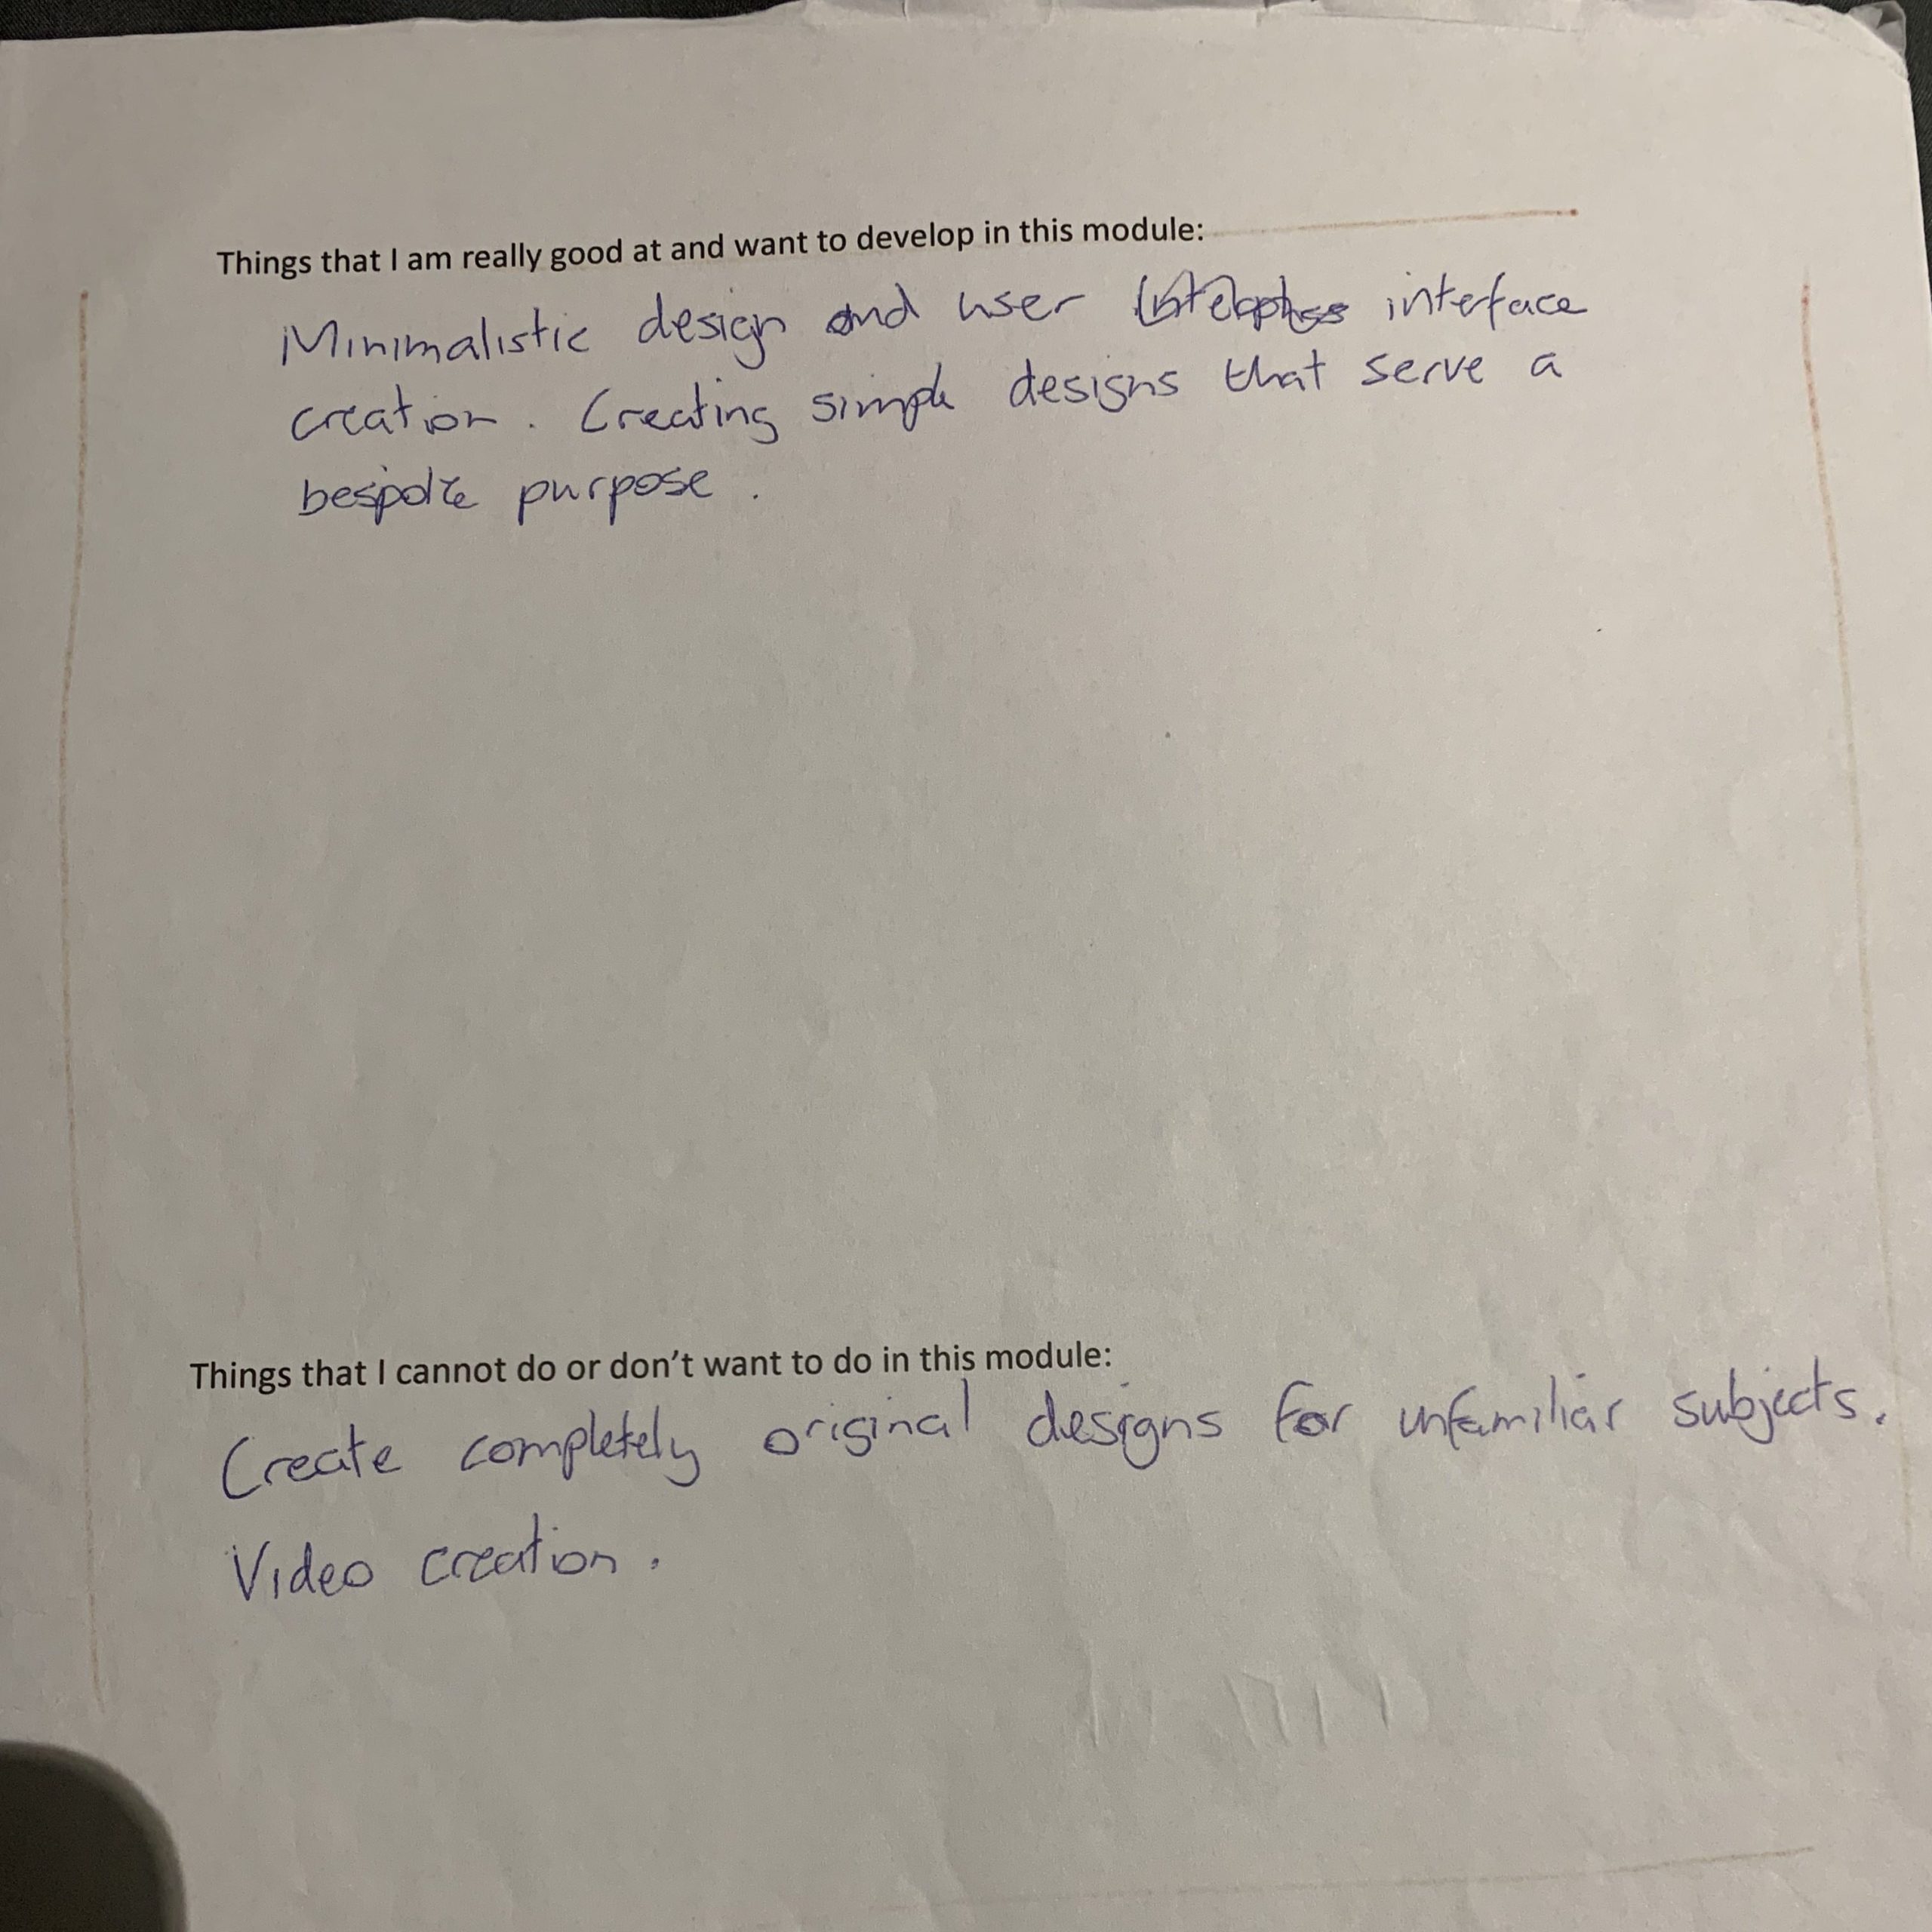 Things that I am really good at and want to develop in this module:
Minimalistic design and user interface
creation. Creating simple designs that serve a
bespoke purpose.
Things that I cannot do or don't want to do in this module:
Create completely original designs for unfamiliar subjects.
Video creation.